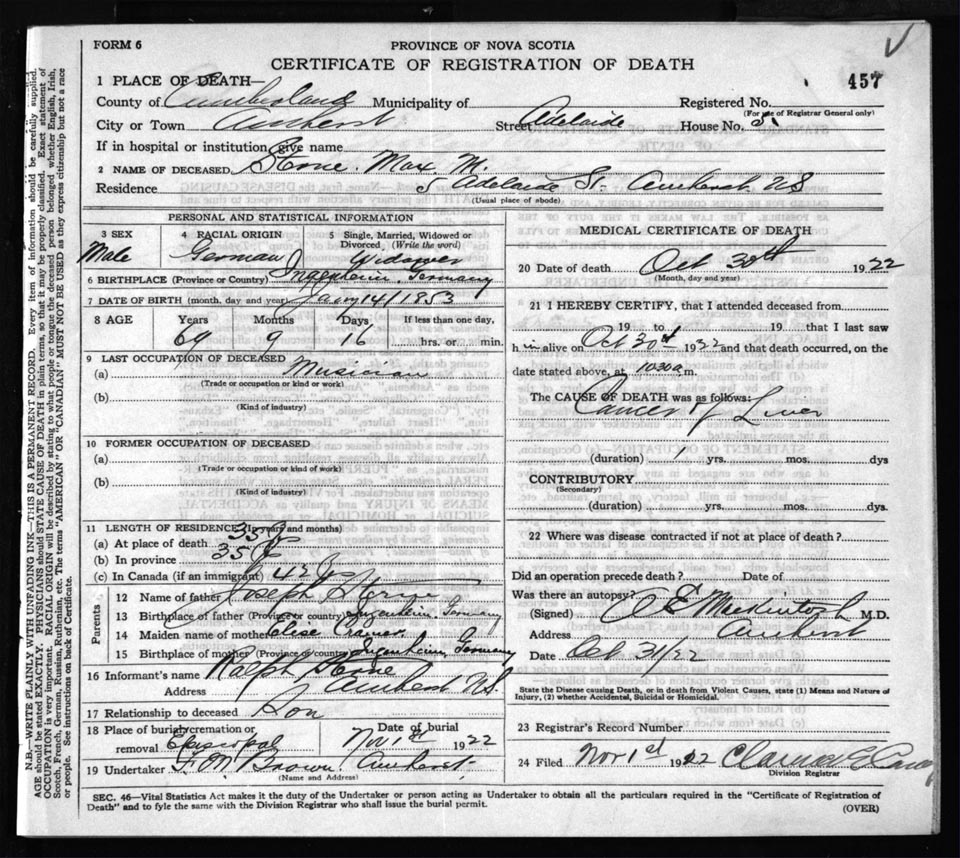 FORM 6
PROVINCE OF NOVA SCOTIA
CERTIFICATE OF REGISTRATION OF DEATH
457
1 PLACE OF DEATH—
County of Cumberland Municipality of Registered No.
(For use of Registrar General only)
City or Town Amherst Street Adelaide House No. 5
If in hospital or institution give name
2 NAME OF DECEASED Sterne. Max. M.
Residence 5 Adelaide St. Amherst NS
(Usual place of abode)
PERSONAL AND STATISTICAL INFORMATION
3 SEX 4 RACIAL ORIGIN 5 Single, Married, Widowed or Divorced, (Write the word)
Male German Widower
6 BIRTHPLACE (Province or Country) Germany
7 DATE OF BIRTH (month, day and year) Jany 14/1853
8 AGE Years Months Days If less than one day,
69 9 16 hrs. or min.
9 LAST OCCUPATION OF DECEASED
(a) Musician
(Trade or occupation or kind or work)
(b)
(Kind of industry)
10 FORMER OCCUPATION OF DECEASED
(a)
(Trade or occupation or kind of work)
(b)
(Kind of industry)
11 LENGTH OF RESIDENCE (In years and months)
(a) At place of death 35 y
(b) In province 35 y
(c) In Canada (if an immigrant) 43 y
Parents
12 Name of father Joseph Sterne
13 Birthplace of father (Province or country) Germany
14 Maiden name of mother Cramer
15 Birthplace of mother (Province or country) Germany
16 Informant's name Ralph Sterne
Address Amherst NS.
17 Relationship to deceased Son
18 Place of burial, cremation or removal Episcopal
Date of burial Nov 1st 1922
19 Undertaker F. M. Brown Amherst.
(Name and Address)
MEDICAL CERTIFICATE OF DEATH
20 Date of death Oct 30th 1922
(Month, day and year)
21 I HEREBY CERTIFY, that I attended deceased from
19 to 19 that I last saw
h im alive on Oct 30th 1922 and that death occurred, on the
date stated above, at 10:30 a.m.
The CAUSE OF DEATH was as follows:
Cancer of Liver
(duration) 1 yrs. mos. dys
CONTRIBUTORY
(Secondary)
(duration) yrs. mos. dys.
22 Where was disease contracted if not at place of death?
Did an operation precede death? Date of
Was there an autopsy?
(Signed) C E McIntosh M.D.
Address Amherst
Date Oct 31/22
State the Disease causing Death, or in death from Violent Causes, state (1) Means and Nature of
Injury, (2) whether Accidental, Suicidal or Homicidal.
23 Registrar's Record Number
24 Filed Nov 1st 1922 Clarence E
Division Registrar
SEC. 46—Vital Statistics Act makes it the duty of the Undertaker or person acting as Undertaker to obtain all the particulars required in the "Certificate of Registration of
Death" and to fyle the same with the Division Registrar who shall issue the burial permit.
(OVER)
N.B.—WRITE PLAINLY WITH UNFADING INK—THIS IS A PERMANENT RECORD. Every item of information should be carefully supplied.
AGE should be stated EXACTLY. PHYSICIANS should STATE CAUSE OF DEATH in plain terms, so that it may be properly classified. Exact statement of
OCCUPATION is very important. RACIAL ORIGIN will be described by stating to what people or tongue the deceased person belonged whether English, Irish,
Scotch, French, German, Russian, Ruthenian, etc. The terms "AMERICAN" OR "CANADIAN" MUST NOT BE USED as they express citizenship but not a race
or people. See instructions on back of Certificate.